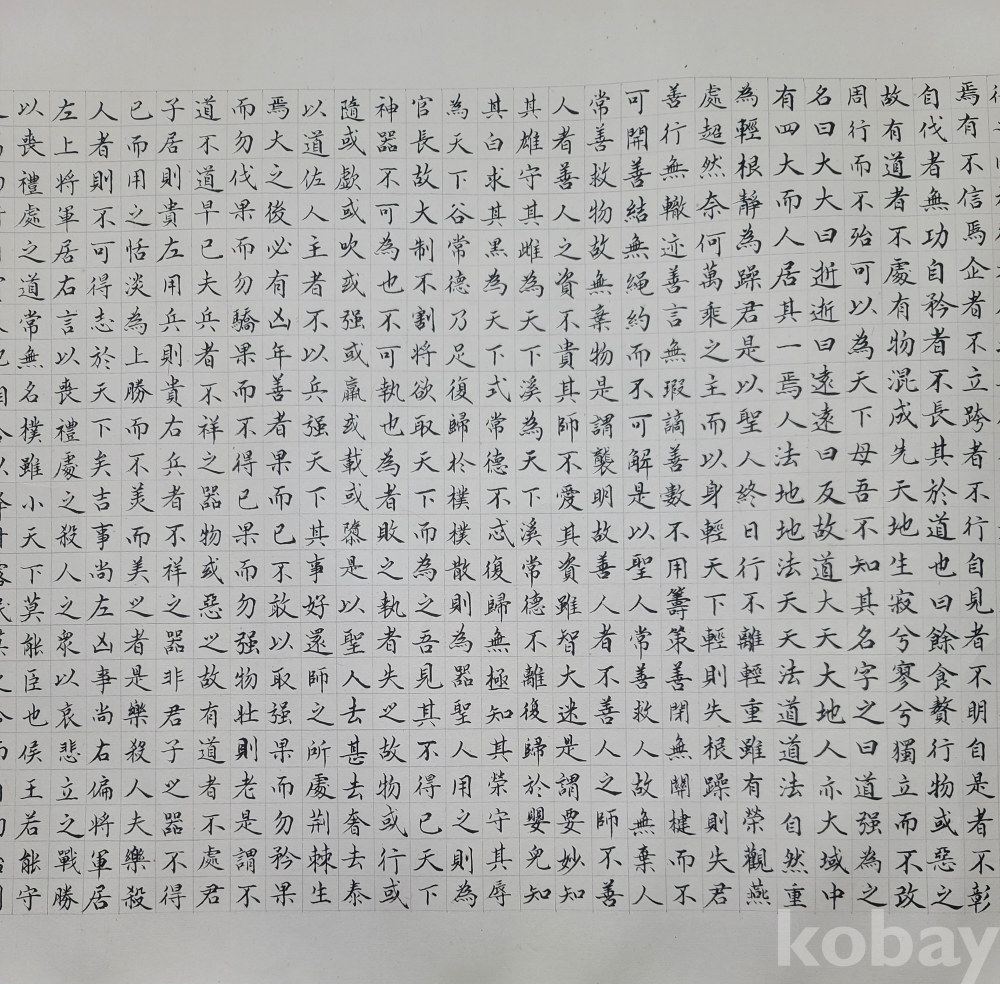 焉有不信焉企者不立跨者不行自見者不明自是者不彰
自伐者無功自矜者不長其於道也曰餘食贅行物或惡之
故有道者不處有物混成先天地生寂兮寥兮獨立而不改
周行而不殆可以為天下母吾不知其名字之曰道强為之
名曰大大曰逝逝曰遠遠曰反故道大天大地人亦大域中
有四大而人居其一焉人法地地法天天法道道法自然重
為輕根靜為躁君是以聖人終日行不離輕重雖有榮觀燕
處超然奈何萬乘之主而以身輕天下輕則失根躁則失君
善行無轍迹善言無瑕謫善數不用籌策善閉無關楗而不
可開善結無繩約而不可解是以聖人常善救人故無棄人
常善救物故無棄物是謂襲明故善人者不善人之師不善
人者善人之資不貴其師不愛其資雖智大迷是謂要妙知
其雄守其雌為天下溪為天下溪常德不離復歸於嬰兒知
其白求其黑為天下式常德不忒復歸無極知其榮守其辱
為天下谷常德乃足復歸於樸樸散則為器聖人用之則為
官長故大制不割將欲取天下而為之吾見其不得已天下
神器不可為也不可執也為者敗之執者失之故物或行或
隨或歔或吹或强或羸或載或隳是以聖人去甚去奢去泰
以道佐人主者不以兵强天下其事好還師之所處荆棘生
焉大之後必有凶年善者果而已不敢以取强果而勿矜果
而勿伐果而勿驕果而不得已果而勿强物壯則老是謂不
道不道早已夫兵者不祥之器物或惡之故有道者不處君
子居則貴左用兵則貴右兵者不祥之器非君子之器不得
已而用之恬淡為上勝而不美而美之者是樂殺人夫樂殺
人者則不可得志於天下矣吉事尚左凶事尚右偏將軍居
左上將軍居右言以喪禮處之殺人之眾以哀悲立之戰勝
以喪禮處之道常無名樸雖小天下莫能臣也侯王若能守
kobay